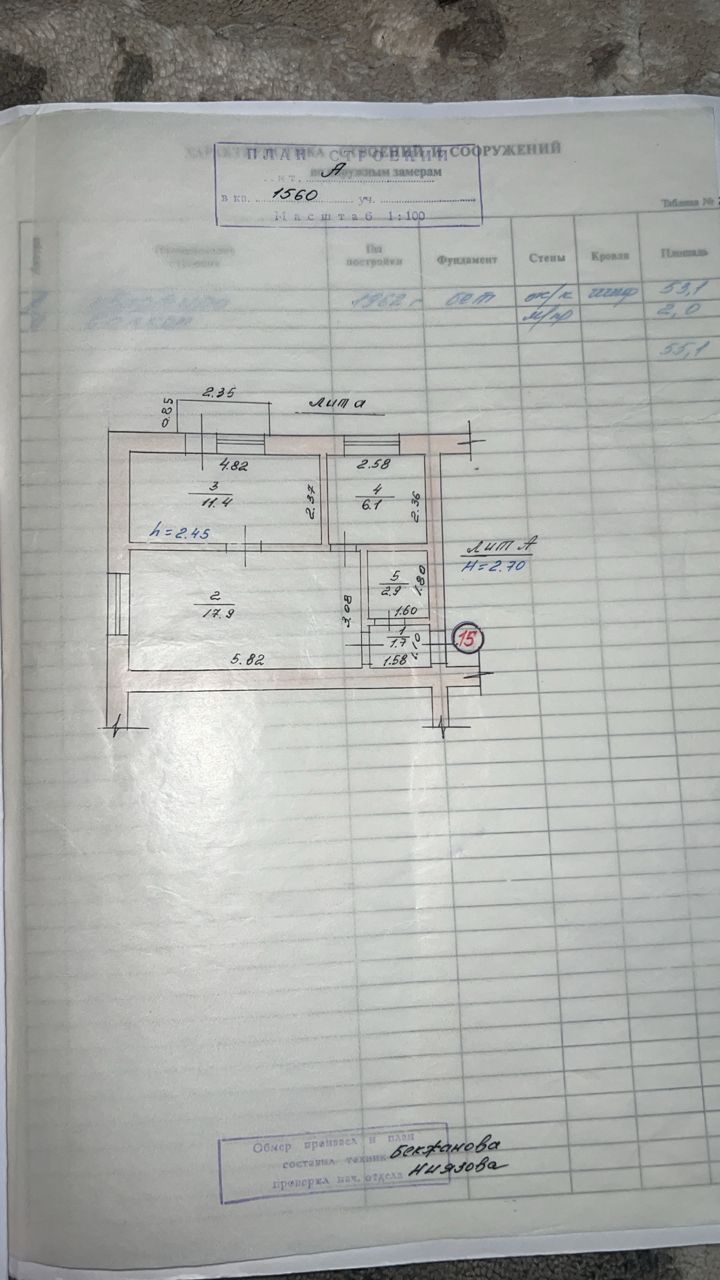 ХАРАКТЕРИСТИКА СТРОЕНИЙ И СООРУЖЕНИЙ
ПЛАН СТРОЕНИЙ
по наружным замерам
лит. А
в кв. 1560 уч.
Масштаб 1:100
Таблица №
Литера
Наименование строения
Год постройки
Фундамент
Стены
Кровля
Площадь
1962 г бет ж/к шиф 53,1
балкон м/пр 2,0
55,1
2.35
0.85
лит а
4.82
2.58
3
11.4
2.37
4
6.1
2.36
h=2.45
лит А
H=2.70
5
2.9
1.80
2
17.9
3.08
1.60
1
1.7
1.10
15
5.82
1.58
Обмер произвел и план
составил техник Бекжанова
проверил нач. отдела Ниязова